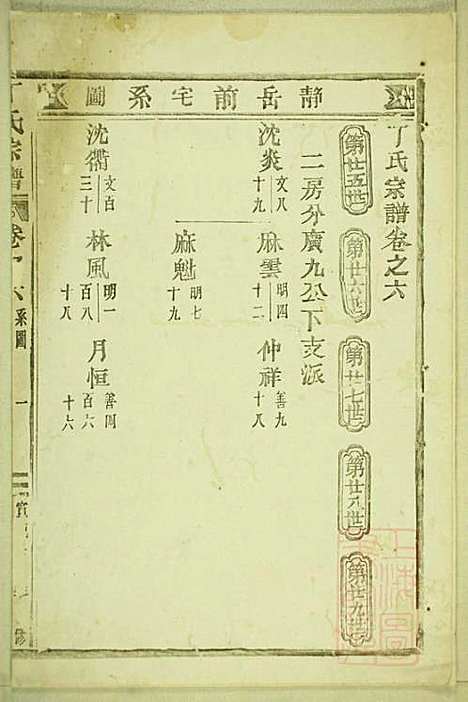 靜岳前宅系圖
丁氏宗譜卷之六
第廿五世
第廿六世
第廿七世
第廿八世
第廿九世
二房分廣九公下支派
沈炎 文八十九
麻雲 明四十二
仲祥 善九十八
麻魁 明七十九
沈衢 文百三十
林風 明一百八十八
月恒 善四百六十六
丁氏宗譜
系圖
一